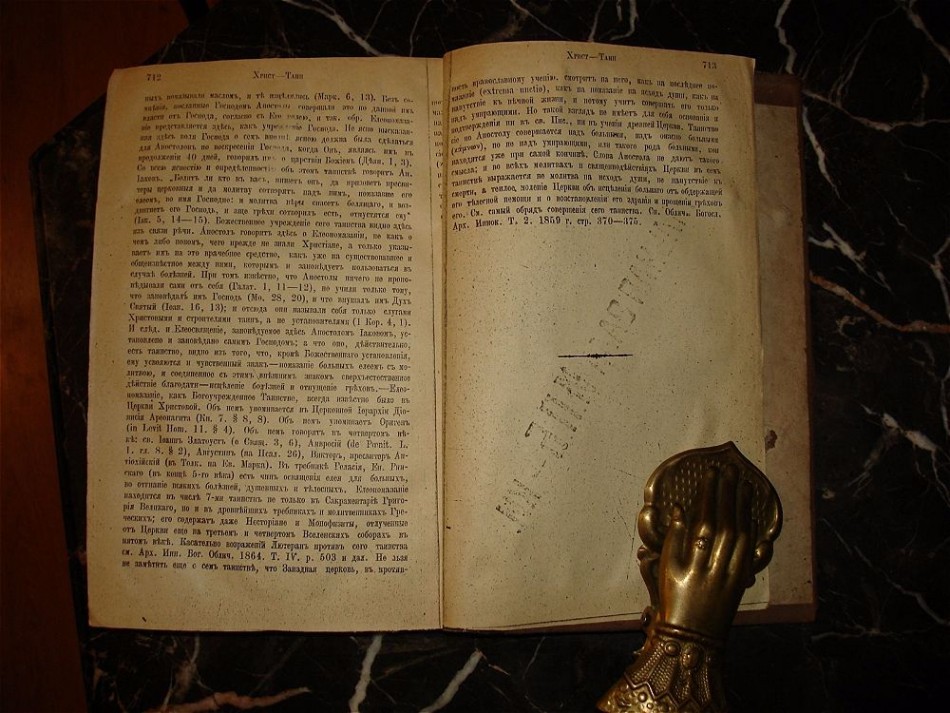 712
Христ—Таин
ныхъ помазывали масломъ, и тѣ исцѣлялись (Марк. 6, 13). Безъ со-
посланные Господомъ Апостолы совершали это по данной имъ
власти отъ Господа, согласно съ Его и, так. обр. Елеопомаза-
ніе представляется здѣсь, какъ Господа. Не ясно высказан-
ная здѣсь воля Господа о семъ ясною должна была сдѣлаться
для Апостоловъ по воскресеніи Господа, когда Онъ, являясь имъ въ
продолженіи 40 дней, говорилъ о царствіи Божіемъ (Дѣян. 1, 3).
Со всею ясностію и опредѣленностію объ этомъ таинствѣ говоритъ Ап.
Іаковъ. „Болитъ ли кто въ васъ, пишетъ онъ, да призоветъ пресви-
теры церковныя и да молитву сотворятъ надъ нимъ, помазавше его
елеемъ, во имя Господне: и молитва вѣры спасетъ болящаго, и воз-
двигнетъ его Господь, и аще грѣхи сотворилъ есть, отпустятся ему“
(Іак. 5, 14—15). Божественное учрежденіе сего таинства видно здѣсь
изъ связи рѣчи. Апостолъ говоритъ здѣсь о Елеопомазаніи, не какъ о
чемъ либо новомъ, чего прежде не знали Христіане, а только указы-
ваетъ имъ на это врачебное средство, какъ уже на существовавшее и
общеизвѣстное между ними, которымъ и заповѣдуетъ пользоваться въ
случаѣ болѣзней. При томъ извѣстно, что Апостолы ничего не пропо-
вѣдывали сами отъ себя (Галат. 1, 11—12), не учили только тому,
что заповѣдалъ имъ Господь (Мѳ. 28, 20), и что внушалъ имъ Духъ
Святый (Іоан. 16, 13); и отсюда они называли себя только слугами
Христовыми и строителями таинъ, а не установителями (1 Кор. 4, 1).
И слѣд. и Елеосвященіе, заповѣдуемое здѣсь Апостоломъ Іаковомъ, ус-
тановлено и заповѣдано самимъ Господомъ; а что оно, дѣйствительно,
есть таинство, видно изъ того, что, кромѣ Божественнаго установленія,
ему усвояются и чувственный знакъ—помазаніе больныхъ елеемъ съ мо-
литвою, и соединенное съ этимъ внѣшнимъ знакомъ сверхъестественное
дѣйствіе благодати—исцѣленіе болѣзней и отпущеніе грѣховъ.—Елео-
помазаніе, какъ Богоучрежденное Таинство, всегда извѣстно было въ
Церкви Христовой. Объ немъ упоминается въ Церковной Іерархіи Діо-
нисія Ареопагита (Кн. 7. § 8, 8). Объ немъ упоминаетъ Оригенъ
(in Levit Hom. 11. § 4). Объ немъ говорятъ въ четвертомъ вѣ-
кѣ: св. Іоаннъ Златоустъ (о Свящ. 3, 6), Амвросій (de Penit. L.
1. гл. 8. § 2), Августинъ (на Псал. 26), Викторъ, пресвиторъ Ан-
тіохійскій (въ Толк. на Ев. Марка). Въ требникѣ Геласія, Еп. Рим-
скаго (въ концѣ 5-го вѣка) есть чинъ освященія елея для больныхъ,
во отгнаніе всякихъ болѣзней, душевныхъ и тѣлесныхъ. Елеопомазаніе
находится въ числѣ 7-ми таинствъ не только въ Сакраментаріѣ Григо-
рія Великаго, но и въ древнѣйшихъ требникахъ и молитвенникахъ Гре-
ческихъ; его содержатъ даже Несторіане и Монофизиты, отлученные
отъ Церкви еще на третьемъ и четвертомъ Вселенскихъ соборахъ въ
пятомъ вѣкѣ. Касательно возраженій Лютеранъ противъ сего таинства
см. Арх. Инн. Бог. Облич, 1864. Т. IV. p. 503 и дал. Не льзя
не замѣтить еще о семъ таинствѣ, что Западная церковь, въ против-
Христ—Таин
713
ность православному ученію, смотритъ на него, какъ на послѣднее по-
мазаніе (extrema unctio), какъ на помазаніе на исходъ души, какъ на
напутствіе къ вѣчной жизни, и потому учитъ совершать его только
надъ умирающими. Но такой взглядъ не имѣетъ для себя основанія и
подтвержденія ни въ св. Пис., ни въ ученіи древней Церкви. Таинство
по Апостолу совершается надъ больными, надъ всякою больными
но не надъ умирающими, или такого рода больными, кои
находятся уже при самой кончинѣ. Слова Апостола не даютъ такого
смысла; и во всѣхъ молитвахъ и священнодѣйствіяхъ Церкви въ семъ
таинствѣ выражается не молитва на исходъ души, не напутствіе къ
смерти, а теплое моленіе Церкви объ исцѣленіи больнаго отъ обдержащей
его тѣлесной немощи и о возставленіи его здравія и прощеніи грѣховъ
его. См. самый обрядъ совершенія сего таинства. Сн. Облич. Богосл.
Арх. Иннок. Т. 2. 1859 г. стр. 370—375.